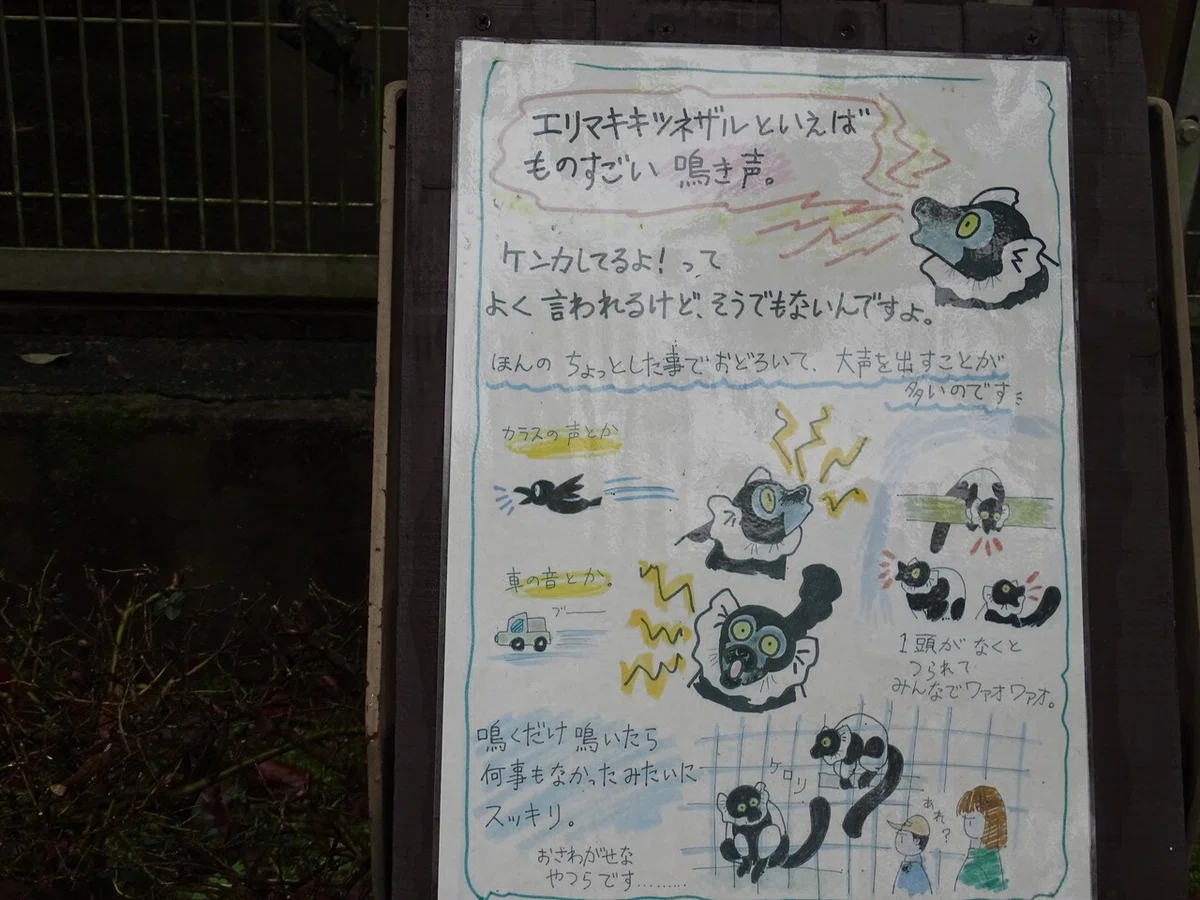 エリマキキツネザルといえば
ものすごい 鳴き声。
ケンカしてるよ！って
よく 言われるけど、そうでもないんですよ。
ほんの ちょっとした事で おどろいて、大声を出すことが
多いのです
カラスの声とか
車の音とか。
ブー
1頭が なくと
つられて
みんなでワァオワァオ。
鳴くだけ 鳴いたら
何事もなかったみたいに
スッキリ。
ケロリ
あれ？
おさわがせな
やつらです………